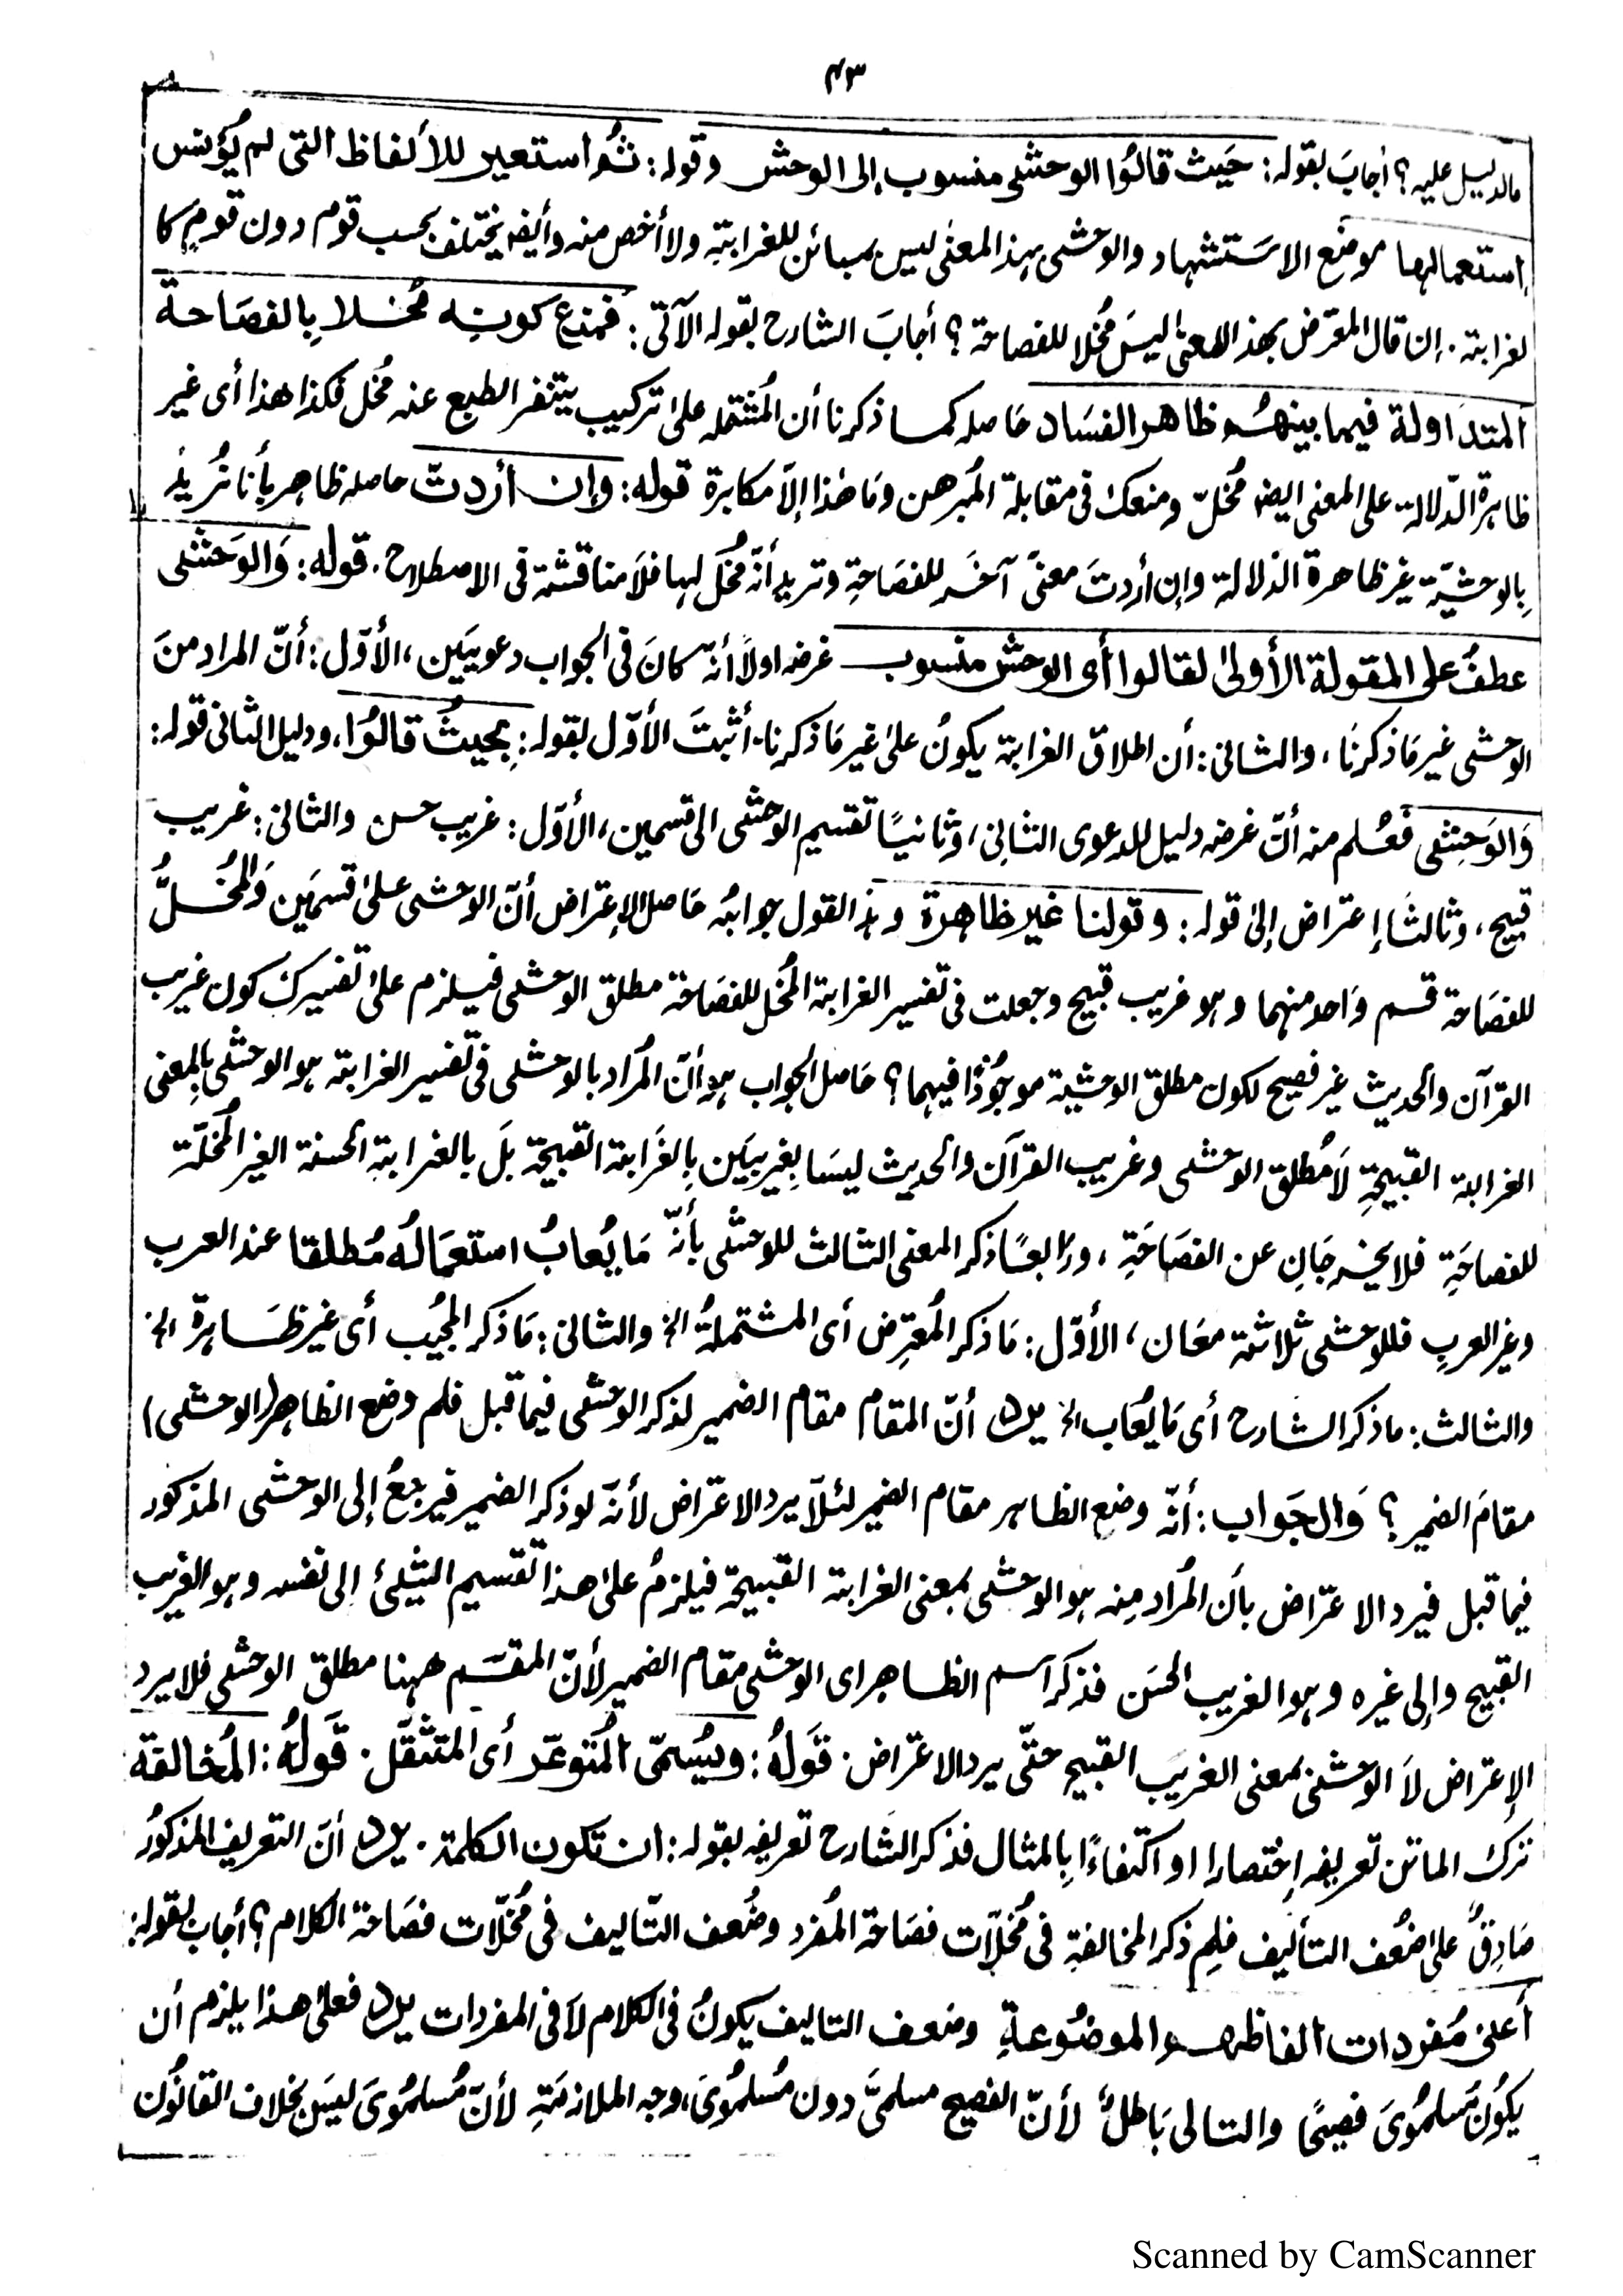 ٤٣
مالدليل عليه؟ أجابَ بقوله: حَيث قالُوا الوحشی منسوب إلى الوحش وقوله: ثُم أستعير للألفاظ التی لم يُؤنس
إستعمالها موضع الاستشهاد والوحشی بهذا المعنٰى ليس بمبائن للغرابتِه ولا أخص منه وأيضه يختلف بحسب قوم دون قومٍ كا
لغرابته. إن قال المعترض بهذا المعنىٰ ليسَ مُخلا للفصاحة؟ أجابَ الشارح بقوله الآتی: فمنع كونِه مُخلا بِالفصَاحة
المتدَاولة فيما بينهُم ظاهر الفسَاد حَاصله كما ذكرنا أن المُشتمله علىٰ تركيب يتنفر الطبع عنه مُخل فكذا هذا أى غير
ظاهرة الدّلالة على المعنى ايضه مُخلّ ومنعك فى مقابلة المُبرهن ومَا هٰذا إلاّ مكابرة قوله: وإن أردتّ حاصله ظاهر بأنا نُريدُ
بِالوحشيّة غير ظاهرة الدلالة وإن أردتَ معنىً آخَر للفصَاحةِ وتريد أنّه مُخلّ لها فلاَ مناقشة فى الاصطلاح. قوله: وَالوَحشی
عطفٌ على المقولة الأولىٰ لقالوا أى الوحش منسوب غرضه اولاً أنّه كانَ فى الجواب دعويَين، الأوّل: أنّ المراد منَ
الوحشی غير مَا ذكرنَا، والثانى: أن اطلاق الغرابة يكونُ علىٰ غير مَا ذكرنا. أثبتَ الأوّل بقوله: بِحيثُ قالُوا، ودليل الثانى قوله:
وَالوَحشی فعُلم منه أنّ غرضه دليل للدعوى الثانِی، وثانيًا تقسيم الوحشی الى قسمين، الأوّل: غريب حسن والثانى: غريب
قبيح، وثالثًا إعتراض إلىٰ قوله: وقولنا غير ظاهرة وهذا القول جوابُه حَاصل الإعتراض أنّ الوحشی علىٰ قسمَين وَالمُخلُّ
للفصَاحة قسم وَاحد منهما وهو غريب قبيح وجعلت فى تفسير الغرابة المُخل للفصَاحة مطلق الوحشی فيلزم علىٰ تفسيرك كون غريب
القرآن والحديث غير فصيح لكون مطلق الوحشية موجُودًا فيهما؟ حَاصل الجواب هو أنّ المُراد بالوحشی فى تفسير الغرابة هو الوحشی بالمعنى
الغرابة القبيحةِ لاَ مُطلق الوحشی وغريب القرآن والحديث ليسَا بِغريبَين بِالغَرابة القبيحة بلَ بالغرابةِ الحسنة الغير المُخلّة
للفصاحَةِ فلا يخرجَانِ عن الفصَاحَةِ، ورَابعًا ذكر المعنى الثالث للوحشی بأنّه مَا يُعابُ استعمَالُه مُطلقا عند العرب
وغير العربِ فللوحشی ثلاثة معَان، الأوّل: مَا ذكر المُعترِض أى المشتملةُ الخ والثانى: مَا ذكر المجُيب أى غير ظَاهرة الخ
والثالث: ما ذكر الشارح أى مَا يُعَاب الخ يرد أنّ المقام مقام الضمير لذكر الوحشی فيما قبل فلم وضع الظاهر (الوحشی)
مقامَ الضمير؟ وَالجَواب: أنّه وضع الظاهر مقام الضمير لئلاّ يرد الاعتراض لأنّه لو ذكر الضمير فيرجعُ إلى الوحشی المذكور
فيما قبل فيرد الاعتراض بأن المُراد مِنه هو الوحشی بمعنى الغرابة القبيحة فيلزمُ علىٰ هذا تقسيم الشئ إلى نفسه وهو الغريب
القبيح وإلى غيره وهو الغريب الحسَن فذكر اسم الظاهر اى الوحشی مقام الضمير لأنّ المقسّم ههنا مطلق الوحشی فلا يرد
الإعتراض لاَ الوحشی بمعنى الغريب القبيح حتّى يرد الاعتراض. قَولهُ: ويُسمّى المُتوعّر أى المتثقّل. قَولُهُ: المُخالفة
ترك الماتن تعريفه إختصارا او اكتفاءًا بِالمثال فذكر الشارح تعريفه بقوله: ان تكون الكلمة. يرد أنّ التعريف المذكورُ
صَادِقٌ علىٰ ضُعف التأليف فلِم ذكر المخالفةِ فى مُخلاّت فصَاحة المُفرد وضُعف التّاليف فى مُخلّات فصَاحة الكلام؟ أجاب بقوله:
أعنى مُفردات الفاظهم الموضُوعةِ وضعف التاليف يكونُ فى الكلام لاَ فى المفردات يرد فعلىٰ هذا يلزم أن
يكُونَ مُسلمُوىَ فصيحًا والتالى بَاطلٌ لأنّ الفصيح مسلمىَّ دون مُسلمُوىَ، وجه الملازمَةِ لأنّ مُسلمُوىَ ليسَ بخلاف القانُون
Scanned by CamScanner